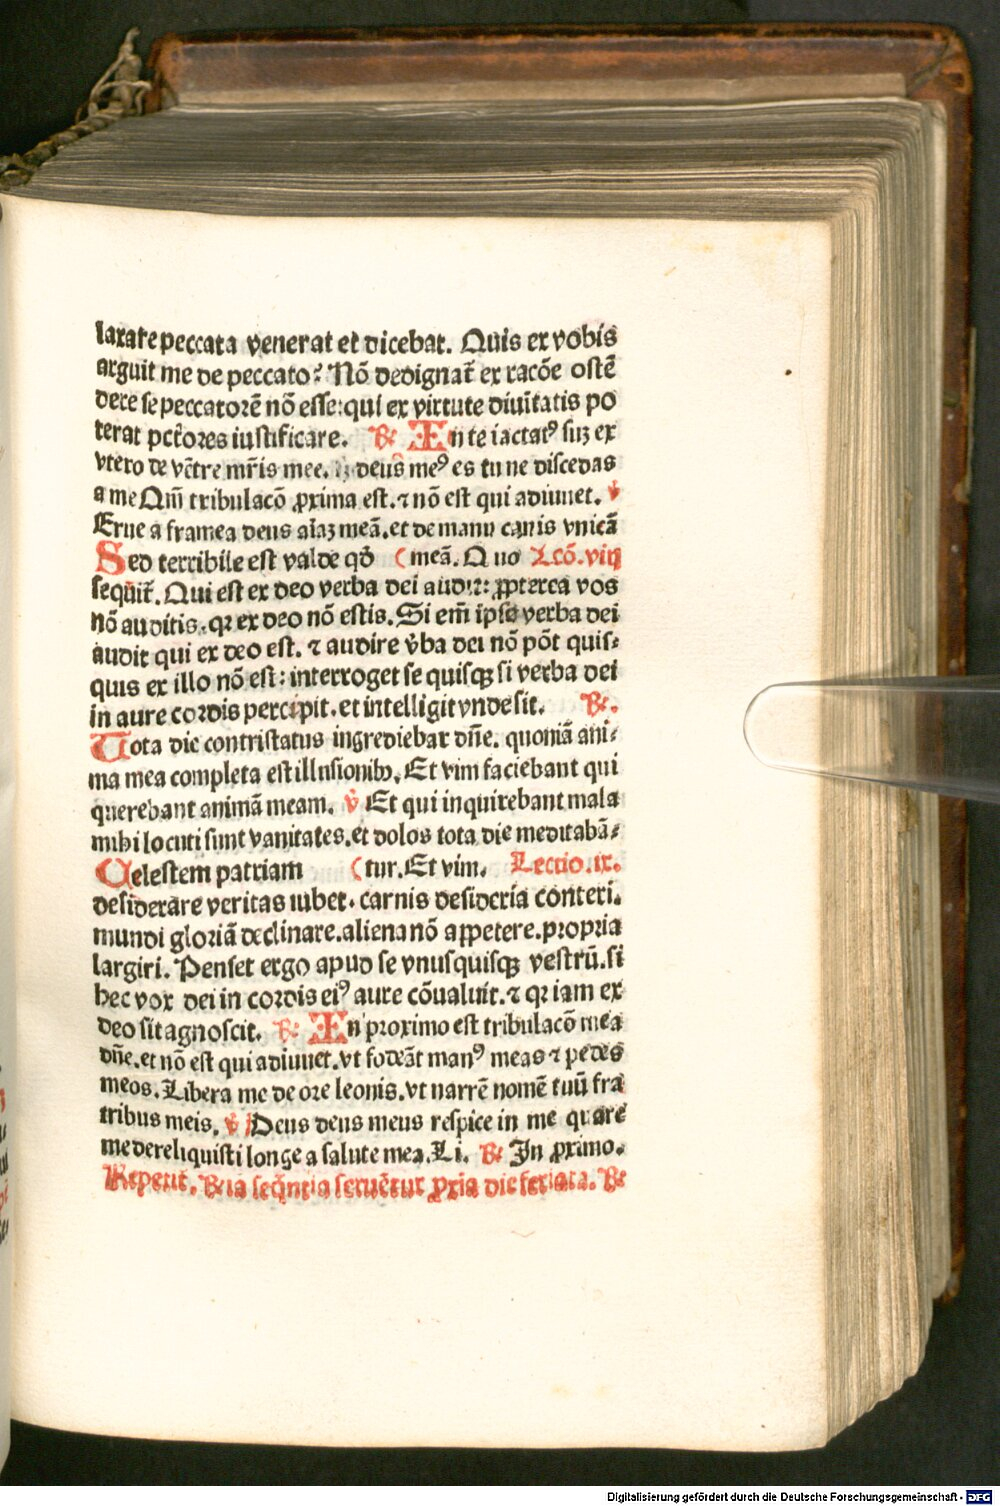 laxare peccata venerat et dicebat. Quis ex vobis
arguit me de peccato? Nō dedignat̄ ex racōe ostē
dere se peccatorē nō esse: qui ex virtute diuitatis po
terat pctōres iustificare. ℟ In te iactatꝰ suꝫ ex
vtero de vētre mr̄is mee. deus meꝰ es tu ne discedas
a me Qm̄ tribulacō ꝓxima est. ⁊ nō est qui adiuuet. ℣
Erue a framea deus aīaꝫ meā. et de manu canis vnicā
Sed terribile est valde qđ (meā. Quo Lcō. viij
sequit̄. Qui est ex deo verba dei audit: ꝓpterea vos
nō auditis. qꝛ ex deo nō estis. Si em̄ ipse verba dei
audit qui ex deo est. ⁊ audire v̄ba dei nō pōt quis⸗
quis ex illo nō est: interroget se quisqꝫ si verba dei
in aure cordis percipit. et intelligit vnde sit. ℟.
Tota die contristatus ingrediebar dn̄e. quoniā ani⸗
ma mea completa est illusionibꝫ. Et vim faciebant qui
querebant animā meam. ℣ Et qui inquirebant mala
mihi locuti sunt vanitates. et dolos tota die meditabā⸗
Celestem patriam (tur. Et vim. Lectio. ix.
desiderare veritas iubet. carnis desideria conteri.
mundi gloriā declinare. aliena nō appetere. propria
largiri. Penset ergo apud se vnusquisqꝫ vestrū. si
hec vox dei in cordis eiꝰ aure cōualuit. ⁊ qꝛ iam ex
deo sit agnoscit. ℟ In proximo est tribulacō mea
dn̄e. et nō est qui adiuuet. vt fodeāt manꝰ meas ⁊ pedes
meos. Libera me de ore leonis. vt narrē nomē tuū fra
tribus meis. ℣ Deus deus meus respice in me quare
me dereliquisti longe a salute mea. Li. ℟ In ꝓximo.
Repetit. ℟ia seq̄ntia seruētur ꝓpria die feriata. ℟
Digitalisierung gefördert durch die Deutsche Forschungsgemeinschaft - DFG